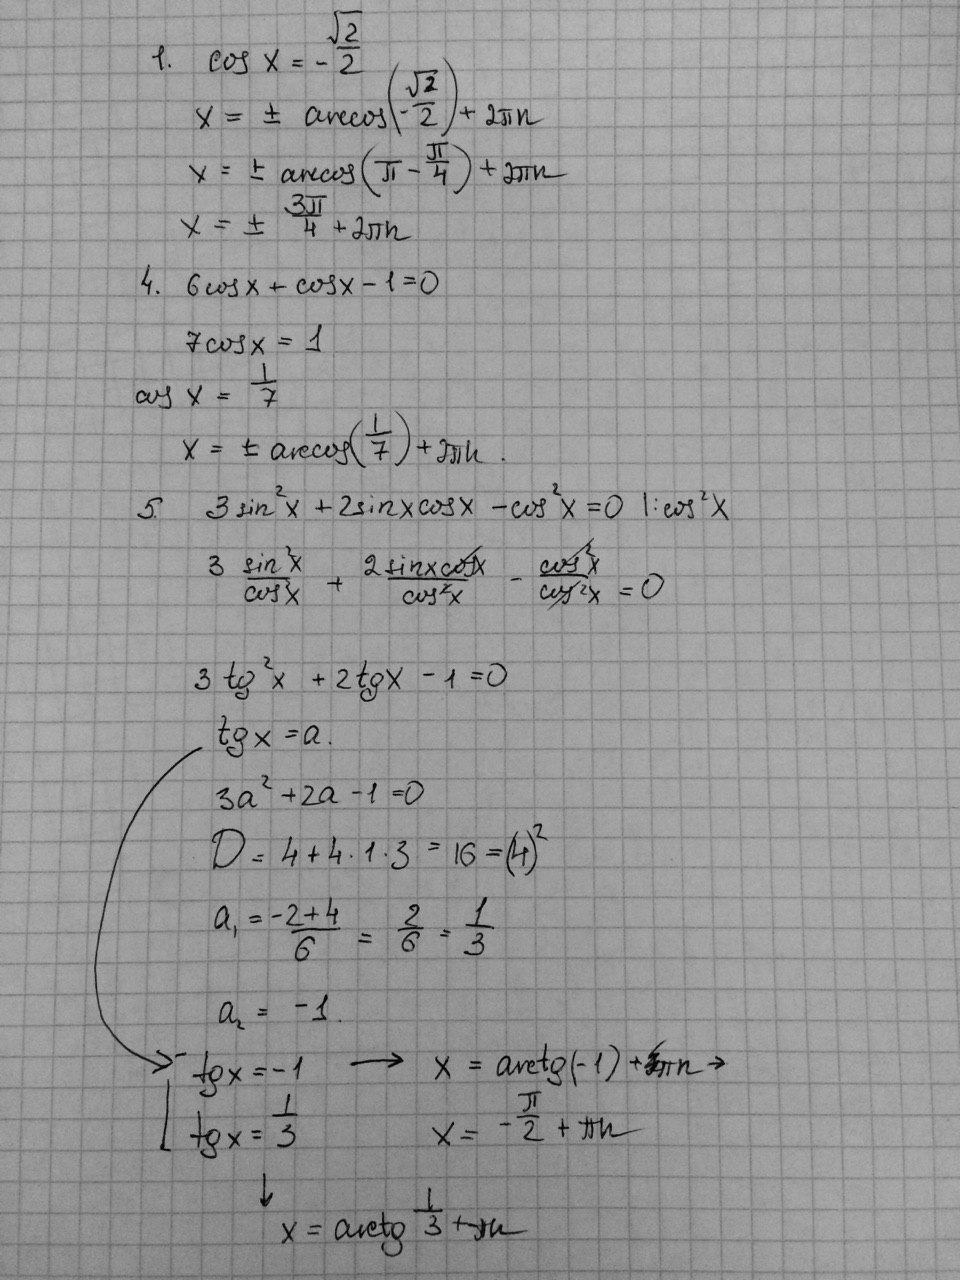 1. cos x = -√2/2
x = ± arccos(-√2/2) + 2πn
x = ± arccos(π - π/4) + 2πn
x = ± 3π/4 + 2πn
4. 6cosx + cosx - 1 = 0
7cosx = 1
cos x = 1/7
x = ± arccos(1/7) + 2πn.
5. 3sin²x + 2sinxcosx - cos²x = 0 |:cos²x
3 sin²x/cos²x + 2sinxcosx/cos²x - cos²x/cos²x = 0
3tg²x + 2tgx - 1 = 0
tgx = a.
3a² + 2a - 1 = 0
D = 4 + 4·1·3 = 16 = (4)²
a₁ = -2+4/6 = 2/6 = 1/3
a₂ = -1.
tgx = -1 → x = arctg(-1) + πn →
tgx = 1/3 x = -π/2 + πn
↓
x = arctg 1/3 + πn